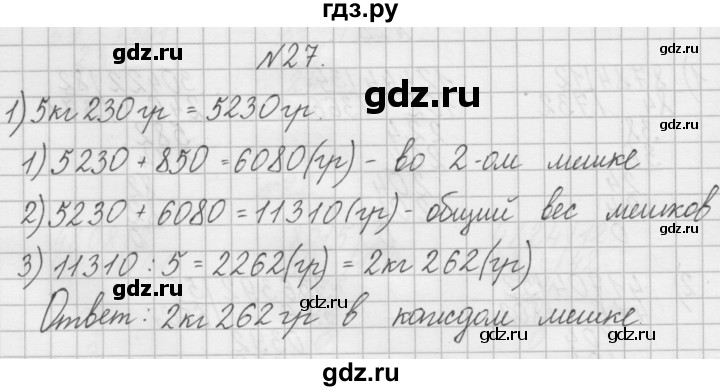 гдз.ру
gdz.ru gdz.ru
№27.
1) 5кг 230гр = 5230гр.
gdz.ru
1) 5230 + 850 = 6080(гр) - во 2-ом мешке
gdz.ru gdz.ru
2) 5230 + 6080 = 11310(гр) - общий вес мешков
3) 11310 : 5 = 2262(гр) = 2кг 262(гр)
gdz.ru gdz.ru
gdz.ru
Ответ: 2кг 262гр в каждом мешке.
gdz.ru gdz.ru
gdz.ru